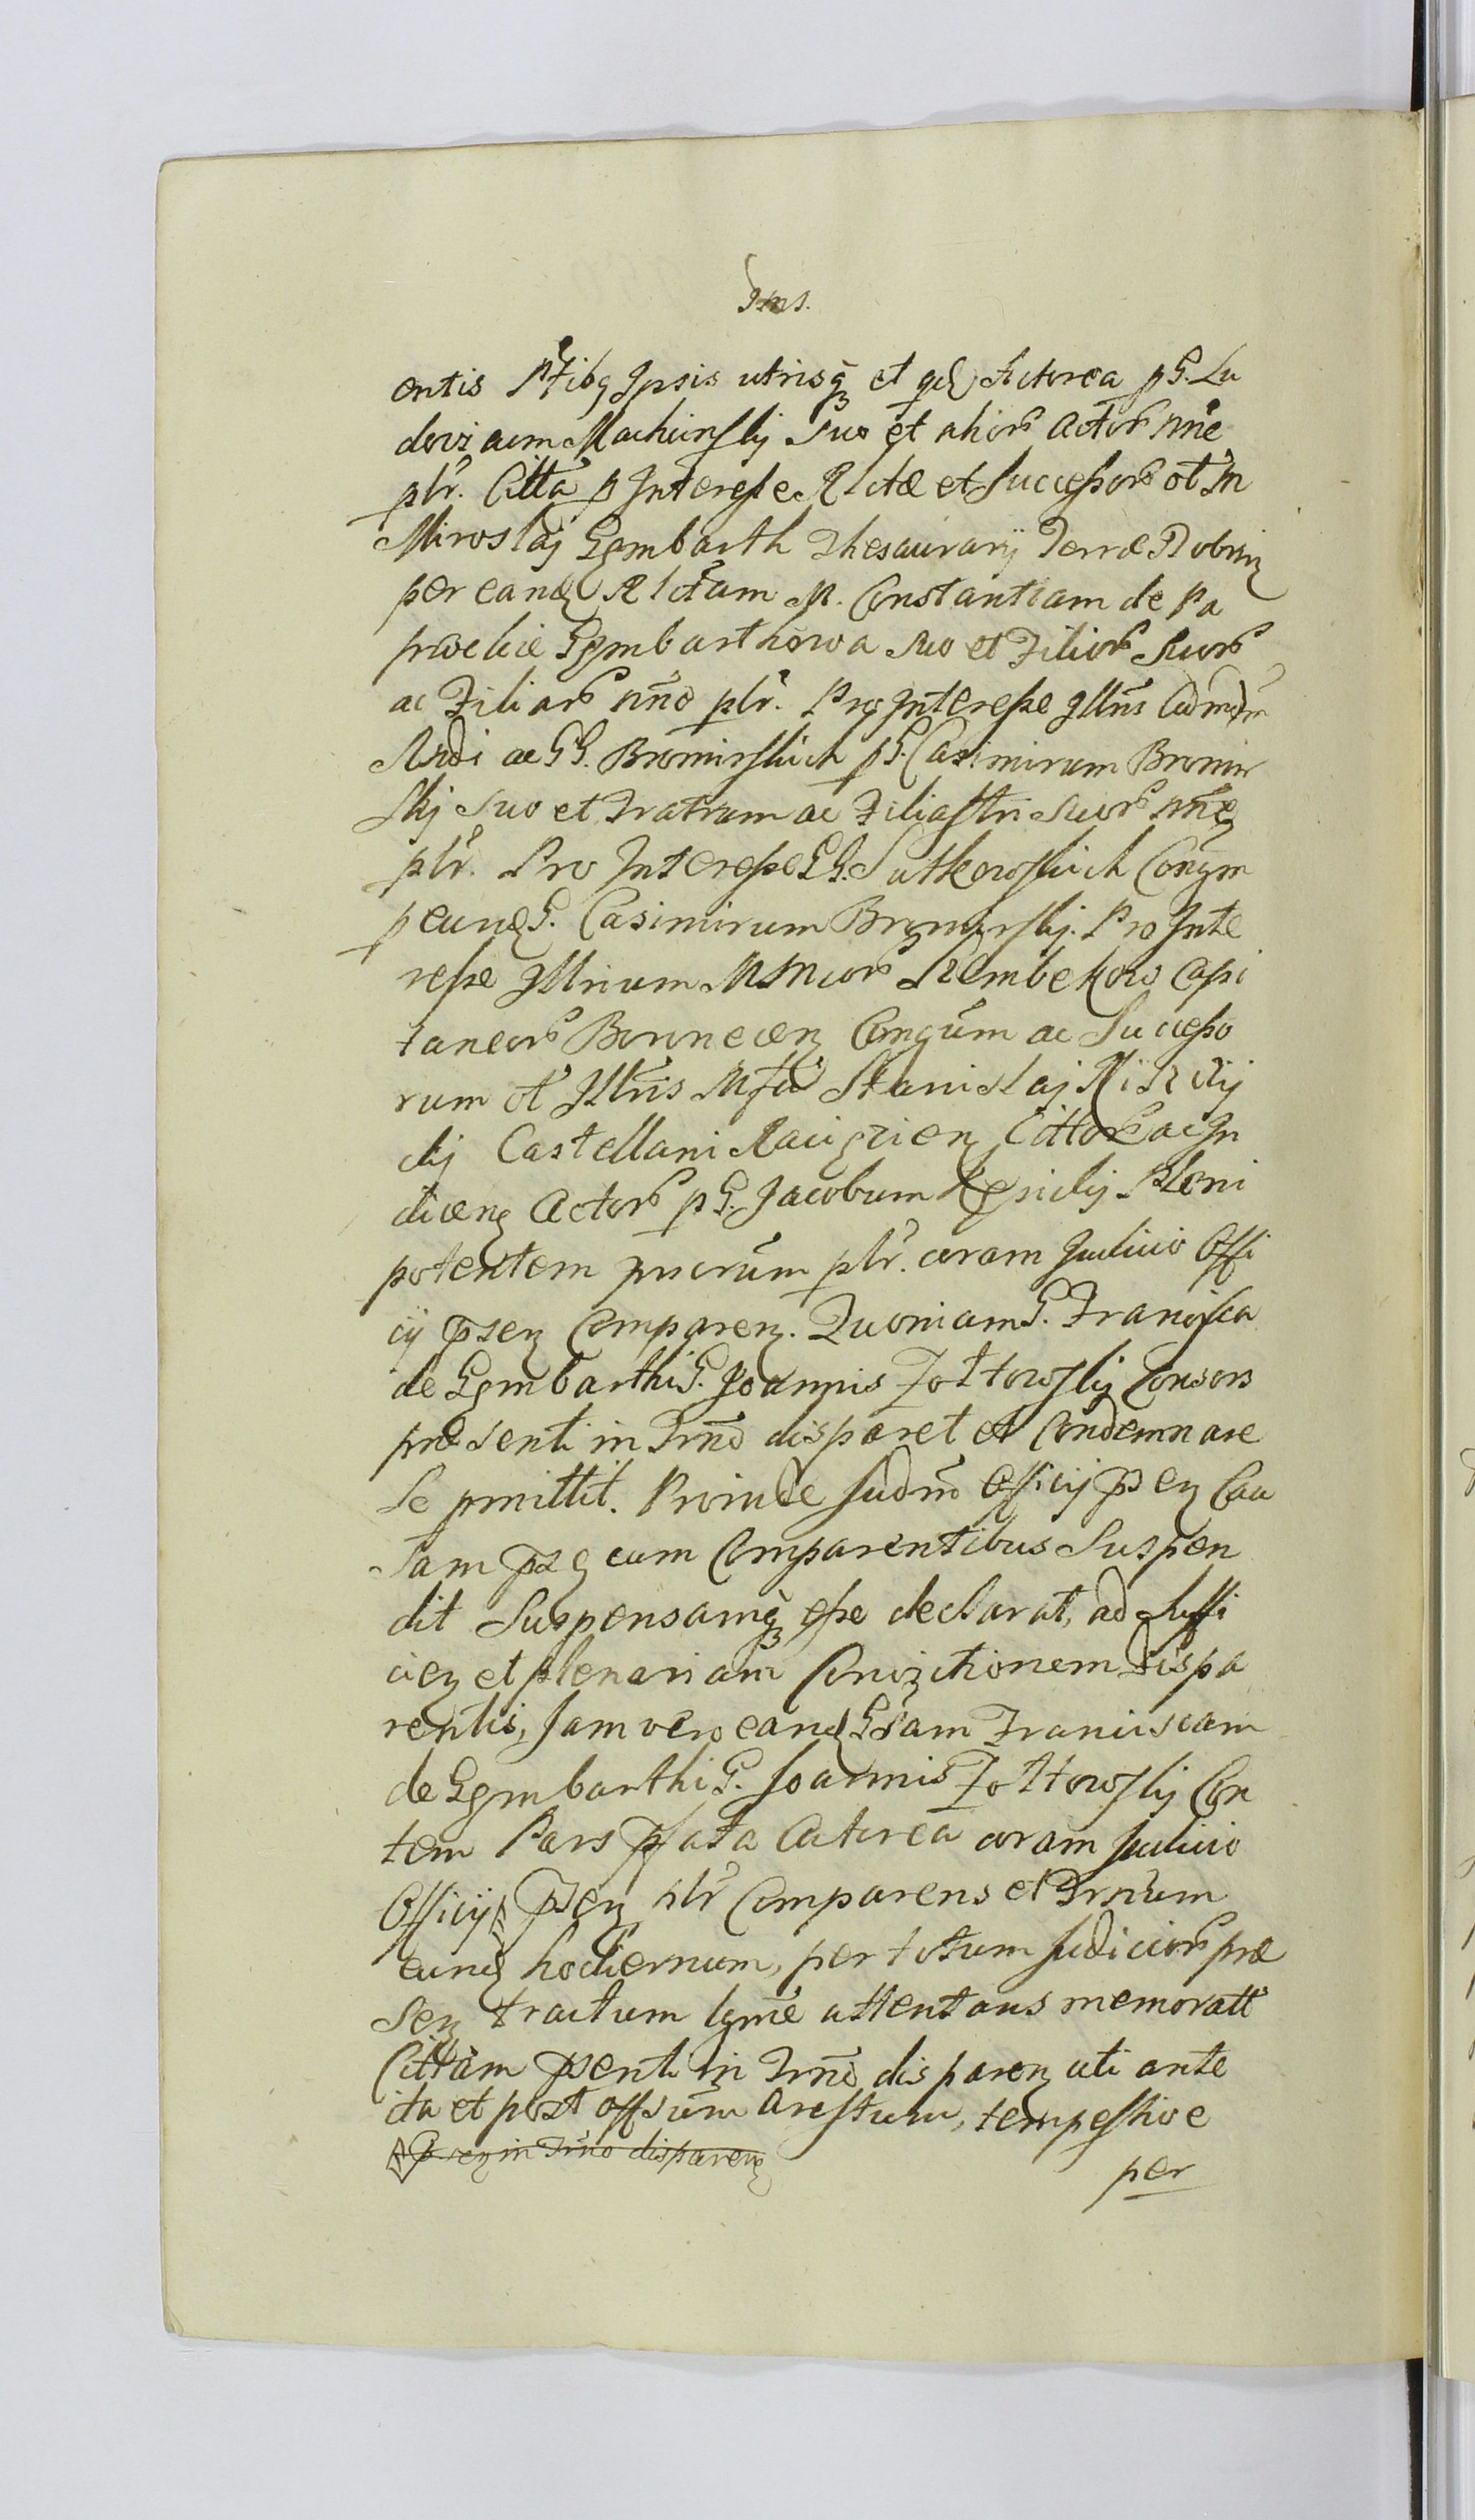 entis Ptibq Ipsis utrisq3 et qd Actorea p G. Lu
dovicum Machcinskij Suo et alior Actor nne
plr. Citta p Interesse Rlctæ et Successor ol M
Miroslaj Gembarth Thesaurarij Terræ Dobrin
per eand Rlctam M. Constantiam de Pa
prockie Gembarthowa suo et Filior Suor
ac Filiar nno plr. Pro Interesse Illris Admdm
Rndi ac GG. Bromirskich p G. Casimirum Bromir
skij suo et Fratrum ac Filiastri Suor nne
plr. Pro Interesse GG. Sutkowskich Conym
p eund G. Casimirum Bromirskij. Pro Inte
resse Illrium MMcor Szembekow Capi
taneor Boruneen Congum ac Successo
rum ol Illris Mfci Stanislaj
kij Castellani Raciązien Cittor ac In
dicen Actor p G. Jacobum Kęsickij Pleni
potentem pncrum plr. coram Judicio Offi
cij psen Comparen. Quoniam G. Francisca
de Gembarthi G. Joannis Zołtowskij Consors
præsenti in Trno disparet et Condemnare
Se pmittit. Proinde Judm Officij psen Cau
sam psen cum Comparentibus Suspen
dit Suspensamq3 esse declarat, ad Suffi
cien et plenariam Convictionem dispa
rentis, Jam vero eand Gsam Franciscam
de Gembarthi G. Joannis Zołtowskij Con
tem Pars pfata Actorea coram Judicio
Officij psen plr Comparens et Trnum
eund hodiernum, per totum Judicior præ
sen tractum lgme attentans memoratt
Cittam psenti in Trno disparen uti ante
ita et post offsum Arestum, tempestive
psen in Trno disparen
per